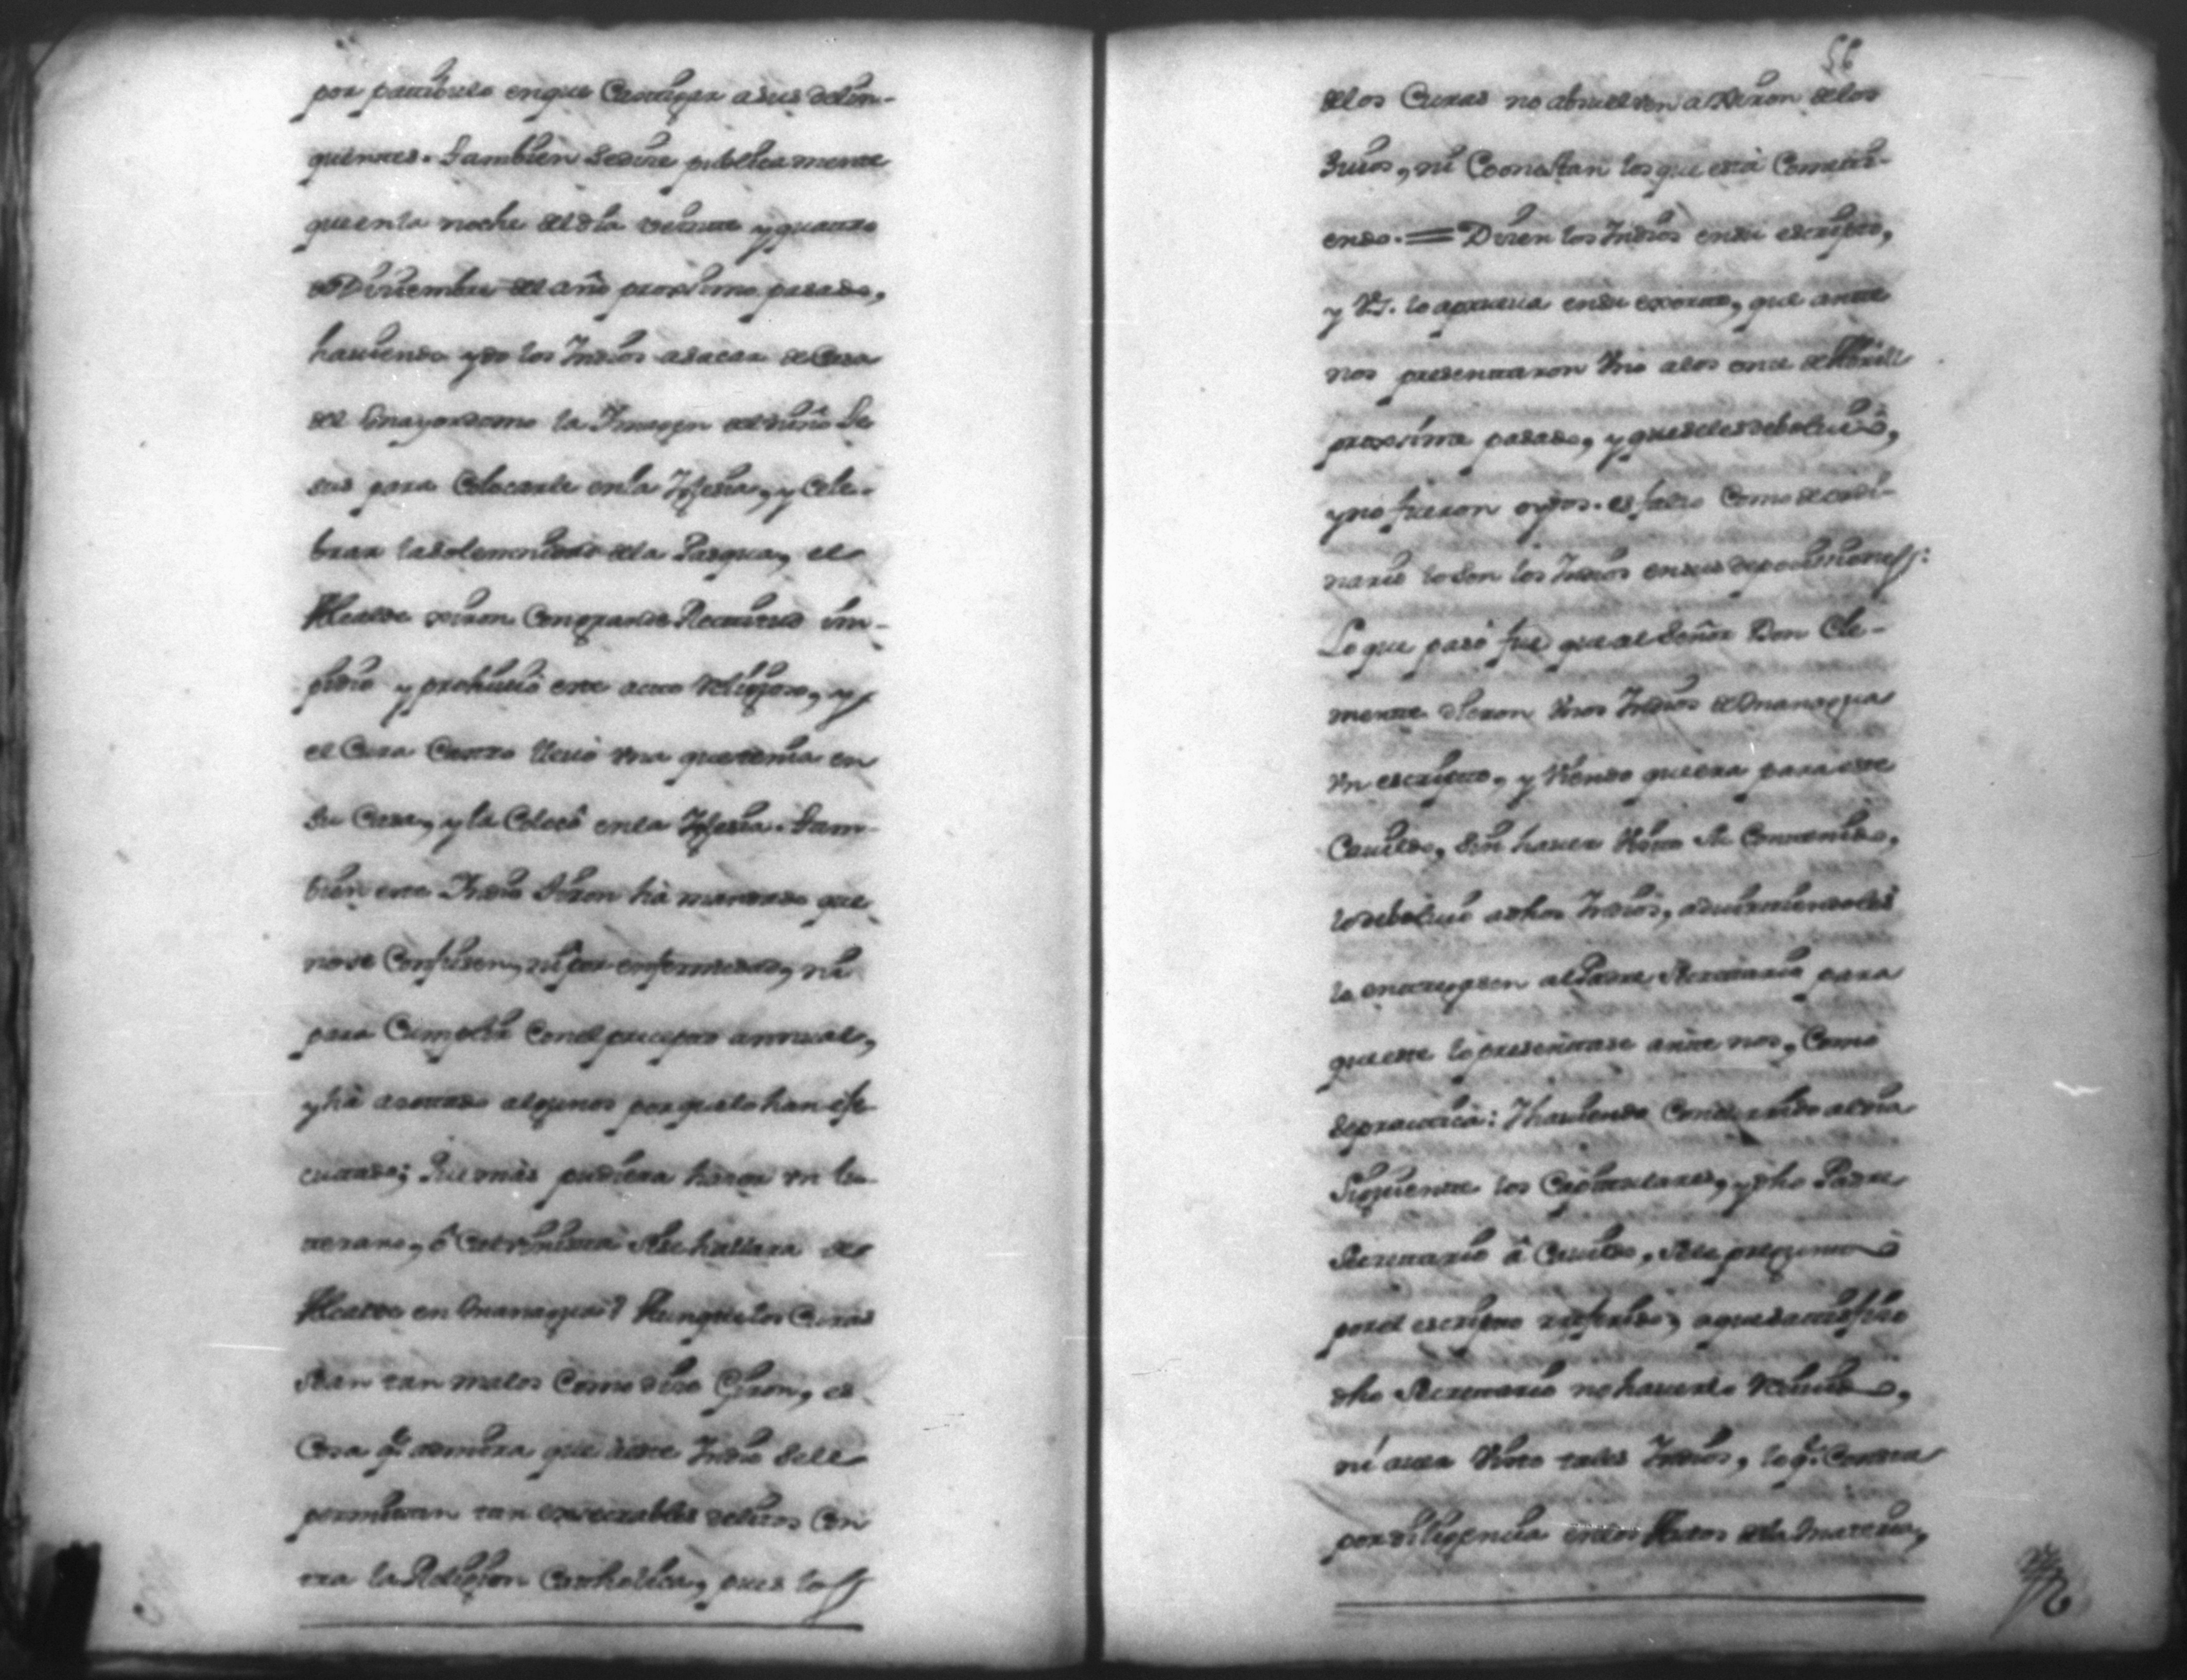 por patribulo enque Castigar asus delin-
quentes. Tambien sedice publicamente
que en la noche del dia veinte y quatro
de Diziembre del año proximo pasado,
haviendo ydo los Indios asacar de Casa
del Mayordomo la Imagen del niño Je
sus para Colocarle enla Iglesia, y Cele-
brar la solemnidad dela Pasqua, el
Alcalde Xiron Congrande im-
pidio y prohivió este acto religioso, y
el Cura Castro llevó una que tenia en
su Casa, y la Colocó enla Iglesia. Tam-
bien este Indio Xiron há mandado que
nose Confiesen, ni por enfermedad, ni
para Cumplir Conel precepto annual,
y há asotado algunos porque lo han ese
cutado; Que más pudiera hazer un lu-
terano, ó Calvinista sise hallara de
Alcalde en Managua? Aunque los Curas
sean tan malos Como dize Giron, es
Cosa q.e admira que a este Indio sele
permitan tan execrables delitos Con
tra la Religion Catholica, pues los
56
delos Curas no absuelven a Xiron delos
suios, ni Coonestan los que está Cometi-
endo. = Dizen los Indios ensu escripto,
y VS. lo aprueva ensu exorto, que ante
nos presentaron uno alos onze de Abril
proximo pasado, y queseles debolvió,
y no fueron oydos. es falso Como de ordi-
nario lo son los Indios ensus deposiciones:
Lo que pasó fue que al Señor Don Cle-
mente dieron unos Indios de Managua
un escripto, y viendo que era para este
Cavildo, sin haver visto su Contenido,
lo debolvió adhos Indios, advirtiendoles
lo entregasen al Padre Secretario para
que este lo presentase ante nos, Como
es de practica: Y haviendo Concurrido al dia
siguiente los Capitulares, y dho Padre
Secretario á Cavildo, sele preguntó
por el escripto referido, a que satisfizo
dho Secretario no haverlo recivido,
ni aver visto tales Indios, lo q.e Consta
por diligencia enlos Autos dela Materia,